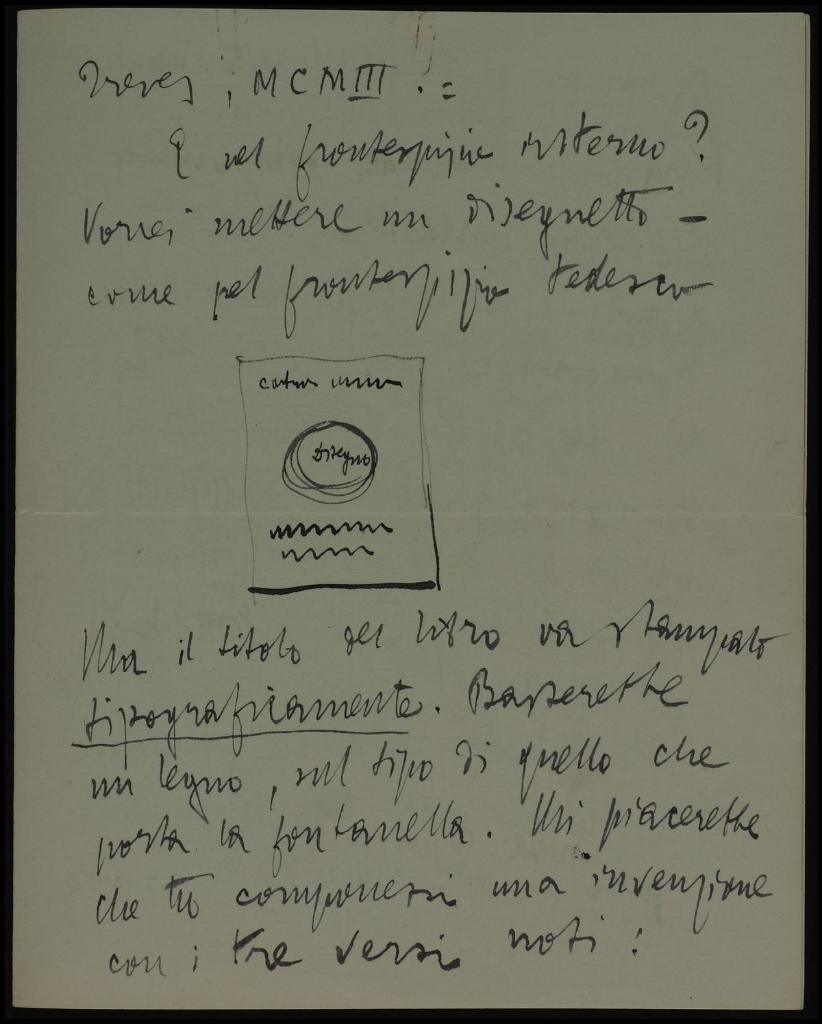 Treves, MCMIII. =
E nel frontespizio interno?
Vorrei mettere un disegnetto -
come pel frontespizio tedesco
Disegno
Ma il titolo del libro va stampato
tipograficamente. Basterebbe
un legno, sul tipo di quello che
porta la fontanella. Mi piacerebbe
che tu componessi una invenzione
con i tre versi noti: